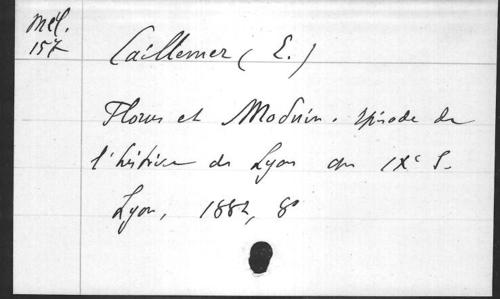 Mél.
157
Caillemer (E.)
Florus et Moduin. Episode de
l'histoire de Lyon au IXe S.
Lyon, 1882, 8°